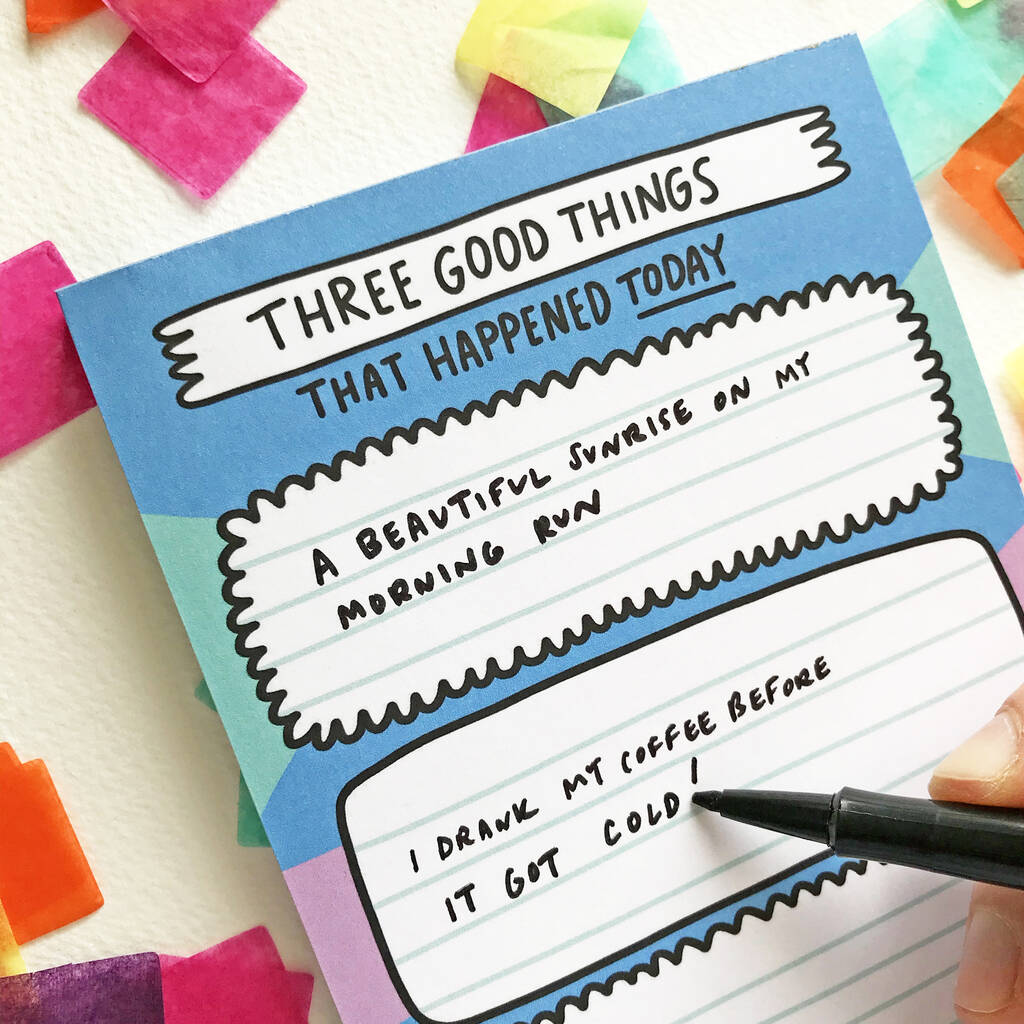 THREE GOOD THINGS
THAT HAPPENED TODAY
A BEAUTIFUL SUNRISE ON MY
MORNING RUN
I DRANK MY COFFEE BEFORE
IT GOT COLD!